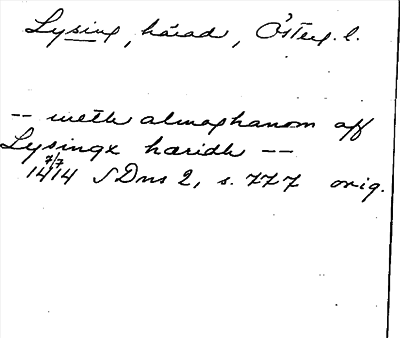 Lysing, härad, Österg.l.
-- weth almoghanom aff
Lysingx hæridh --
14 7/7 14 SDns 2, s. 777 orig.